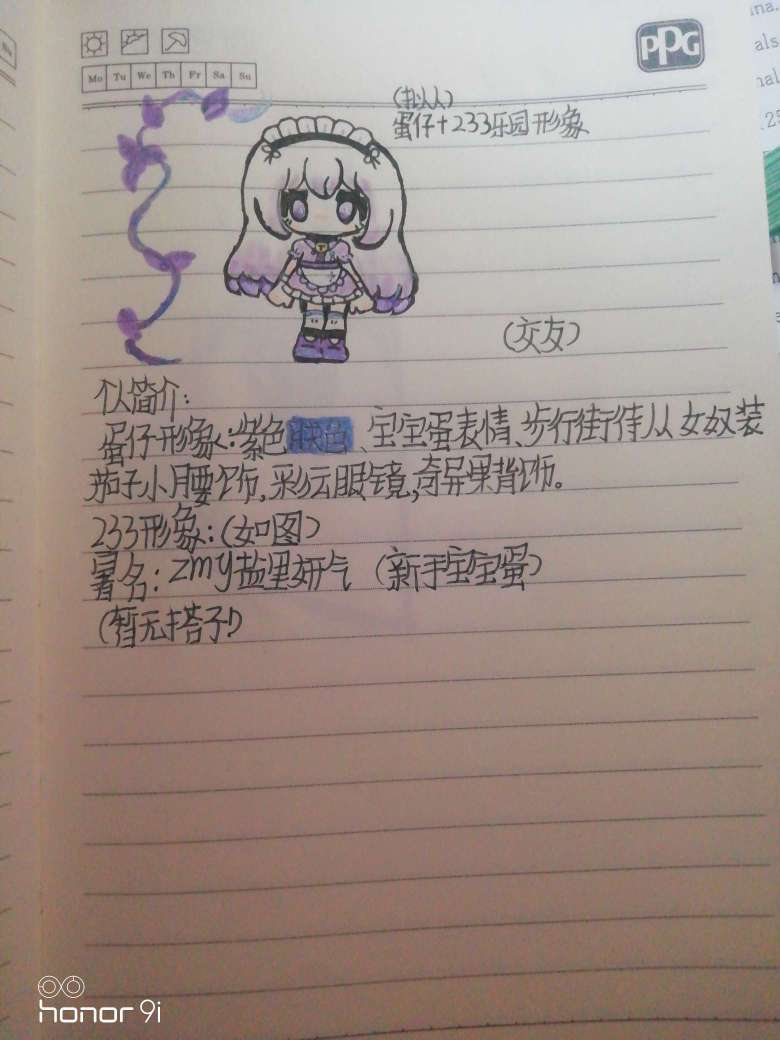 Mo Tu We Th Fr Sa Su
PPG
(拟人)
蛋仔+233乐园形象
(交友)
个人简介:
蛋仔形象:紫色肤色、宝宝蛋表情、步行街侍从女奴装
茄子小腰饰,彩云眼镜,奇异果背饰。
233形象:(如图)
署名:zmy盐里妍气(新手宝宝蛋)
(暂无搭子!)
honor 9i